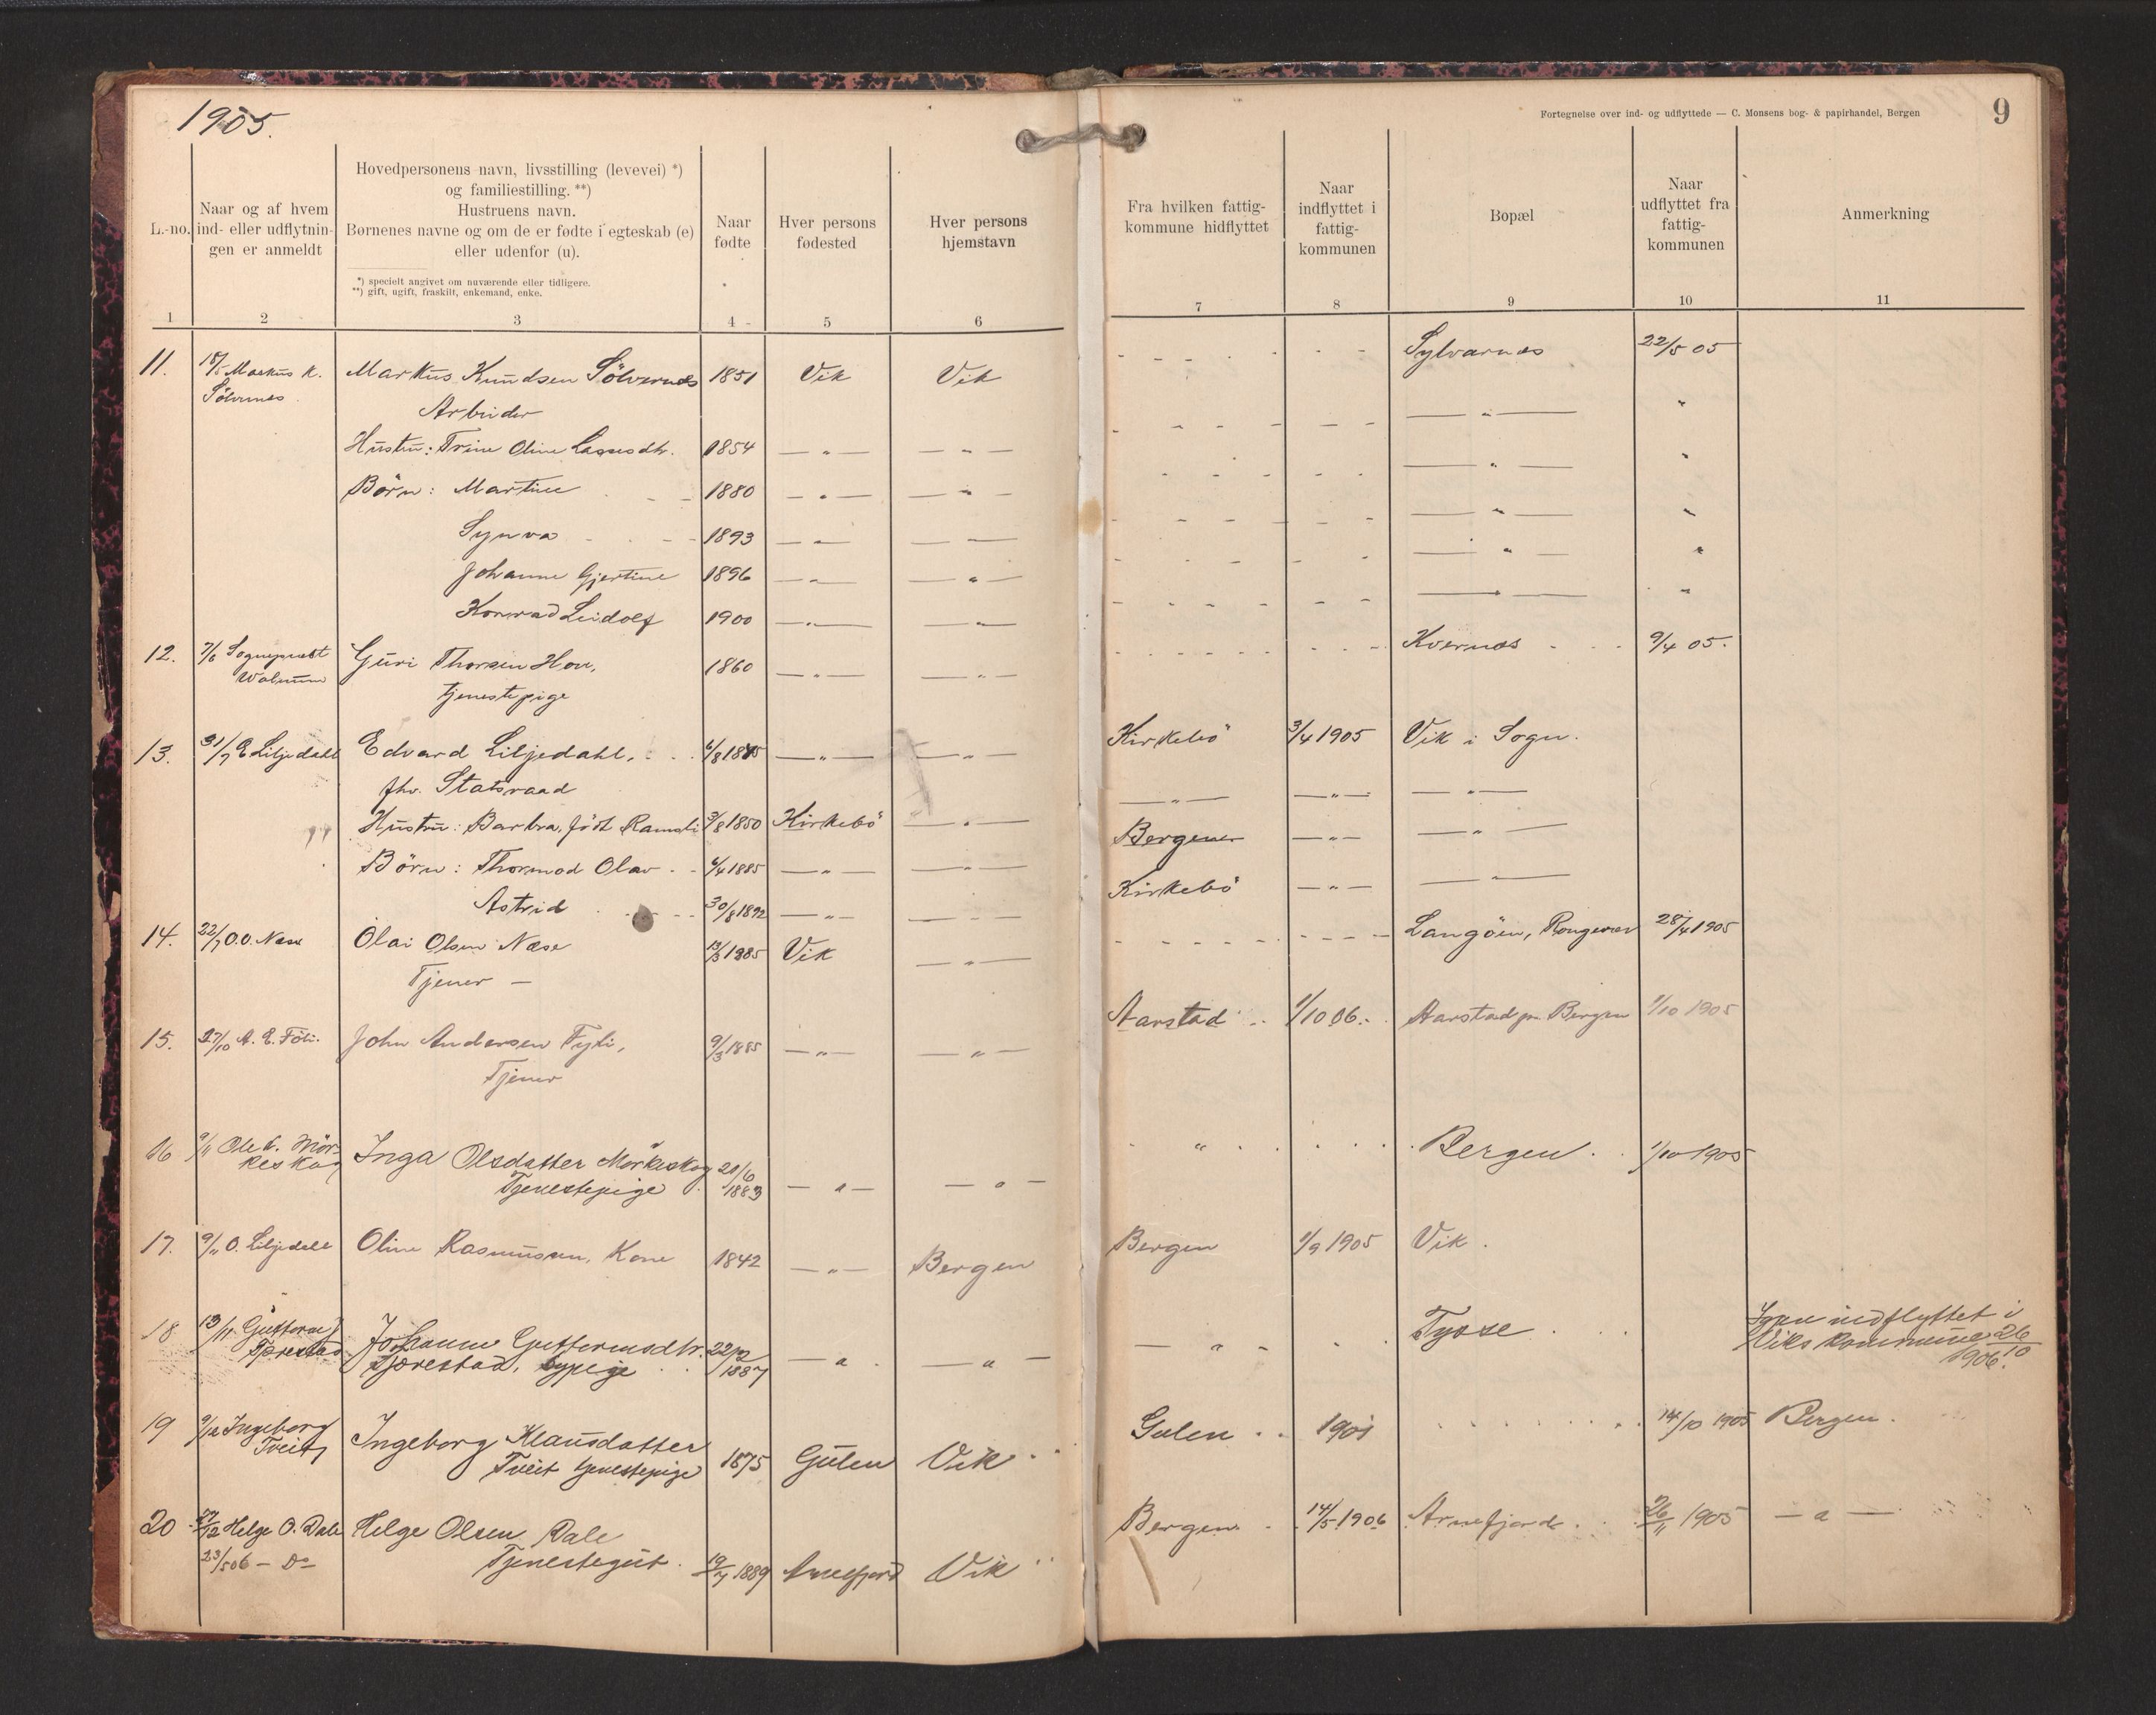 1905.
Fortegnelse over ind- og udflyttede — C. Monsens bog- & papirhandel, Bergen
9
L.-no.
Naar og af hvem
ind- eller udflytnin-
gen er anmeldt
Hovedpersonens navn, livsstilling (levevei) *)
og familiestilling. **)
Hustruens navn.
Børnenes navne og om de er fødte i egteskab (e)
eller udenfor (u).
*) specielt angivet om nuværende eller tidligere.
**) gift, ugift, fraskilt, enkemand, enke.
Naar
fødte
Hver persons
fødested
Hver persons
hjemstavn
Fra hvilken fattig-
kommune hidflyttet
Naar
indflyttet i
fattig-
kommunen
Bopæl
Naar
udflyttet fra
fattig-
kommunen
Anmerkning
1 2 3 4 5 6 7 8 9 10 11
11. Markus K. Markus Knudsen Sölvernes 1851 Vik Vik Sylvarnes 22/5 05
Sölvernes Arbeider — " — "
Hustru: Trine Oline Lassesdtr. 1854 — " — — " — — " — "
Börn: Martine 1880 — " — — " — — " — "
Synva 1893 — " — — " — — " — "
Johanne Gjertine 1896 — " — — " — — " — "
Konrad Leidolf 1900 — " — — " —
12. 7/6 Sogneprest Guri Thorsen Hove, 1860 — " — — " — Kvernes 9/4 05.
Walnum tjenestepige
13. 31/7 E Liljedahl Edvard Liljedahl. 6/8 1845 — " — — " — Kirkebö 3/4 1905 Vik i Sogn.
fhv. Statsraad — " — — " — — " —
Hustru: Barbra, födt Ramsli 3/8 1850 Kirkebö — " — Bergen — " — — " —
Börn: Thormod Olav 6/4 1885 — " — — " — Kirkebö — " — — " —
Astrid 30/8 1892 — " — — " —
14. 22/7 O.O. Næse Olai Olsen Næse 13/3 1885 Vik — " — Langöen, Rongevær 28/4 1905
Tjener —
15. 27/10 A. E. Föli. John Andersen Fyli, 9/3 1885 — " — — " — Aarstad 1/10 06. Aarstad pr. Bergen 1/10 1905
Tjener
16 9/11 Ole E. Mör- Inga Olsdatter Mörkeskog 21/6 " Bergen 1/10 1905
keskog Tjenestepige 1883 — " — — " —
17. 9/11 O. Liljedahl Oline Rasmussen, Kone 1842 — " — Bergen Bergen 1/9 1905 Vik.
18 13/11 Guttorm J Johanne Guttormsdtr. — " — Tysse Igjen indflyttet i
Tjærestad Tjærestad, sypige 1887 — " — — " — Viks kommune 26/10
1906.
19 9/12 Ingeborg Ingeborg Klausdatter Gulen 1901 14/10 1905 Bergen.
Tveit Tveit tjenestepige 1875 Gulen Vik
20 27/12 Helge O. Dale Helge Olsen Dale Bergen 14/5 1906 Arnefjord 26/11 1905 — " —
23/5 06 — Do Tjenestegut. 19/7 1889 Arnefjord Vik